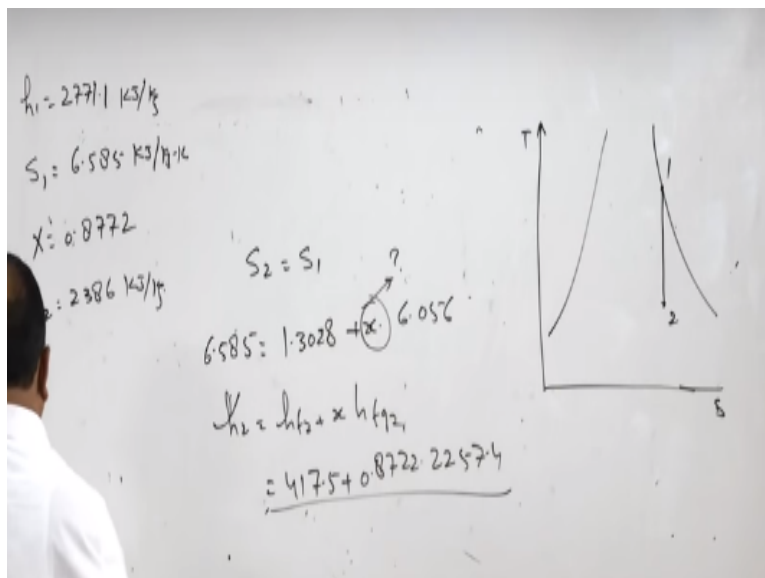 h₁ = 2771.1 KJ/kg
S₁ = 6.585 KJ/kg-K
X = 0.8772
2 = 2386 KJ/kg
S₂ = S₁
?
6.585 = 1.3028 + x. 6.056
h₂ = hf₂ + x hfg₂
= 417.5 + 0.8722. 2257.4
T
1
2
S